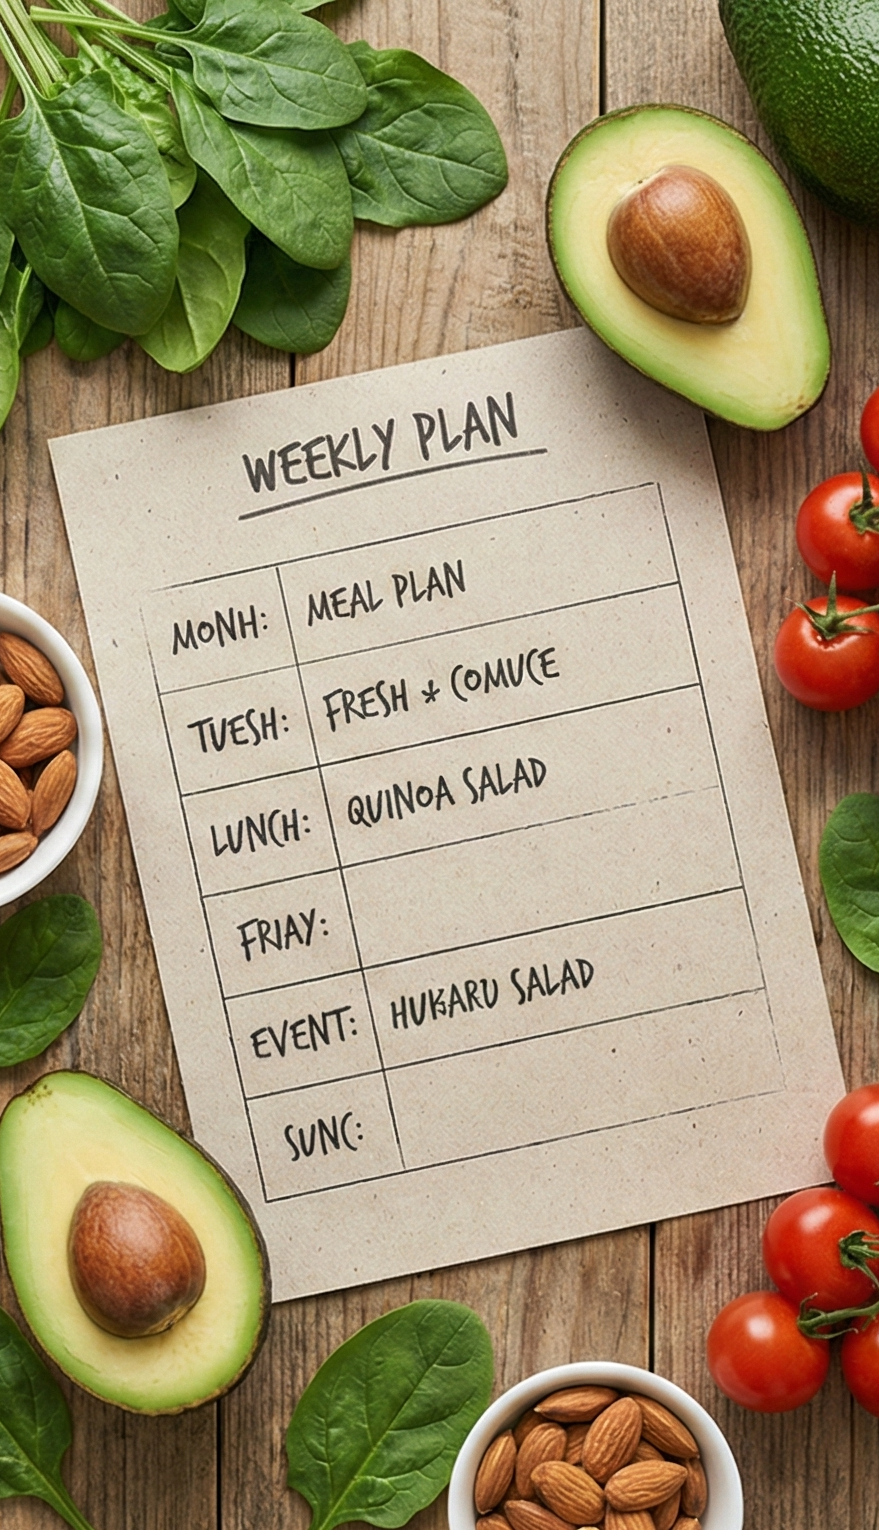 WEEKLY PLAN
MONH: MEAL PLAN
TUESH: FRESH * COMUCE
LUNCH: QUINOA SALAD
FRIAY:
EVENT: HUKARU SALAD
SUNC: